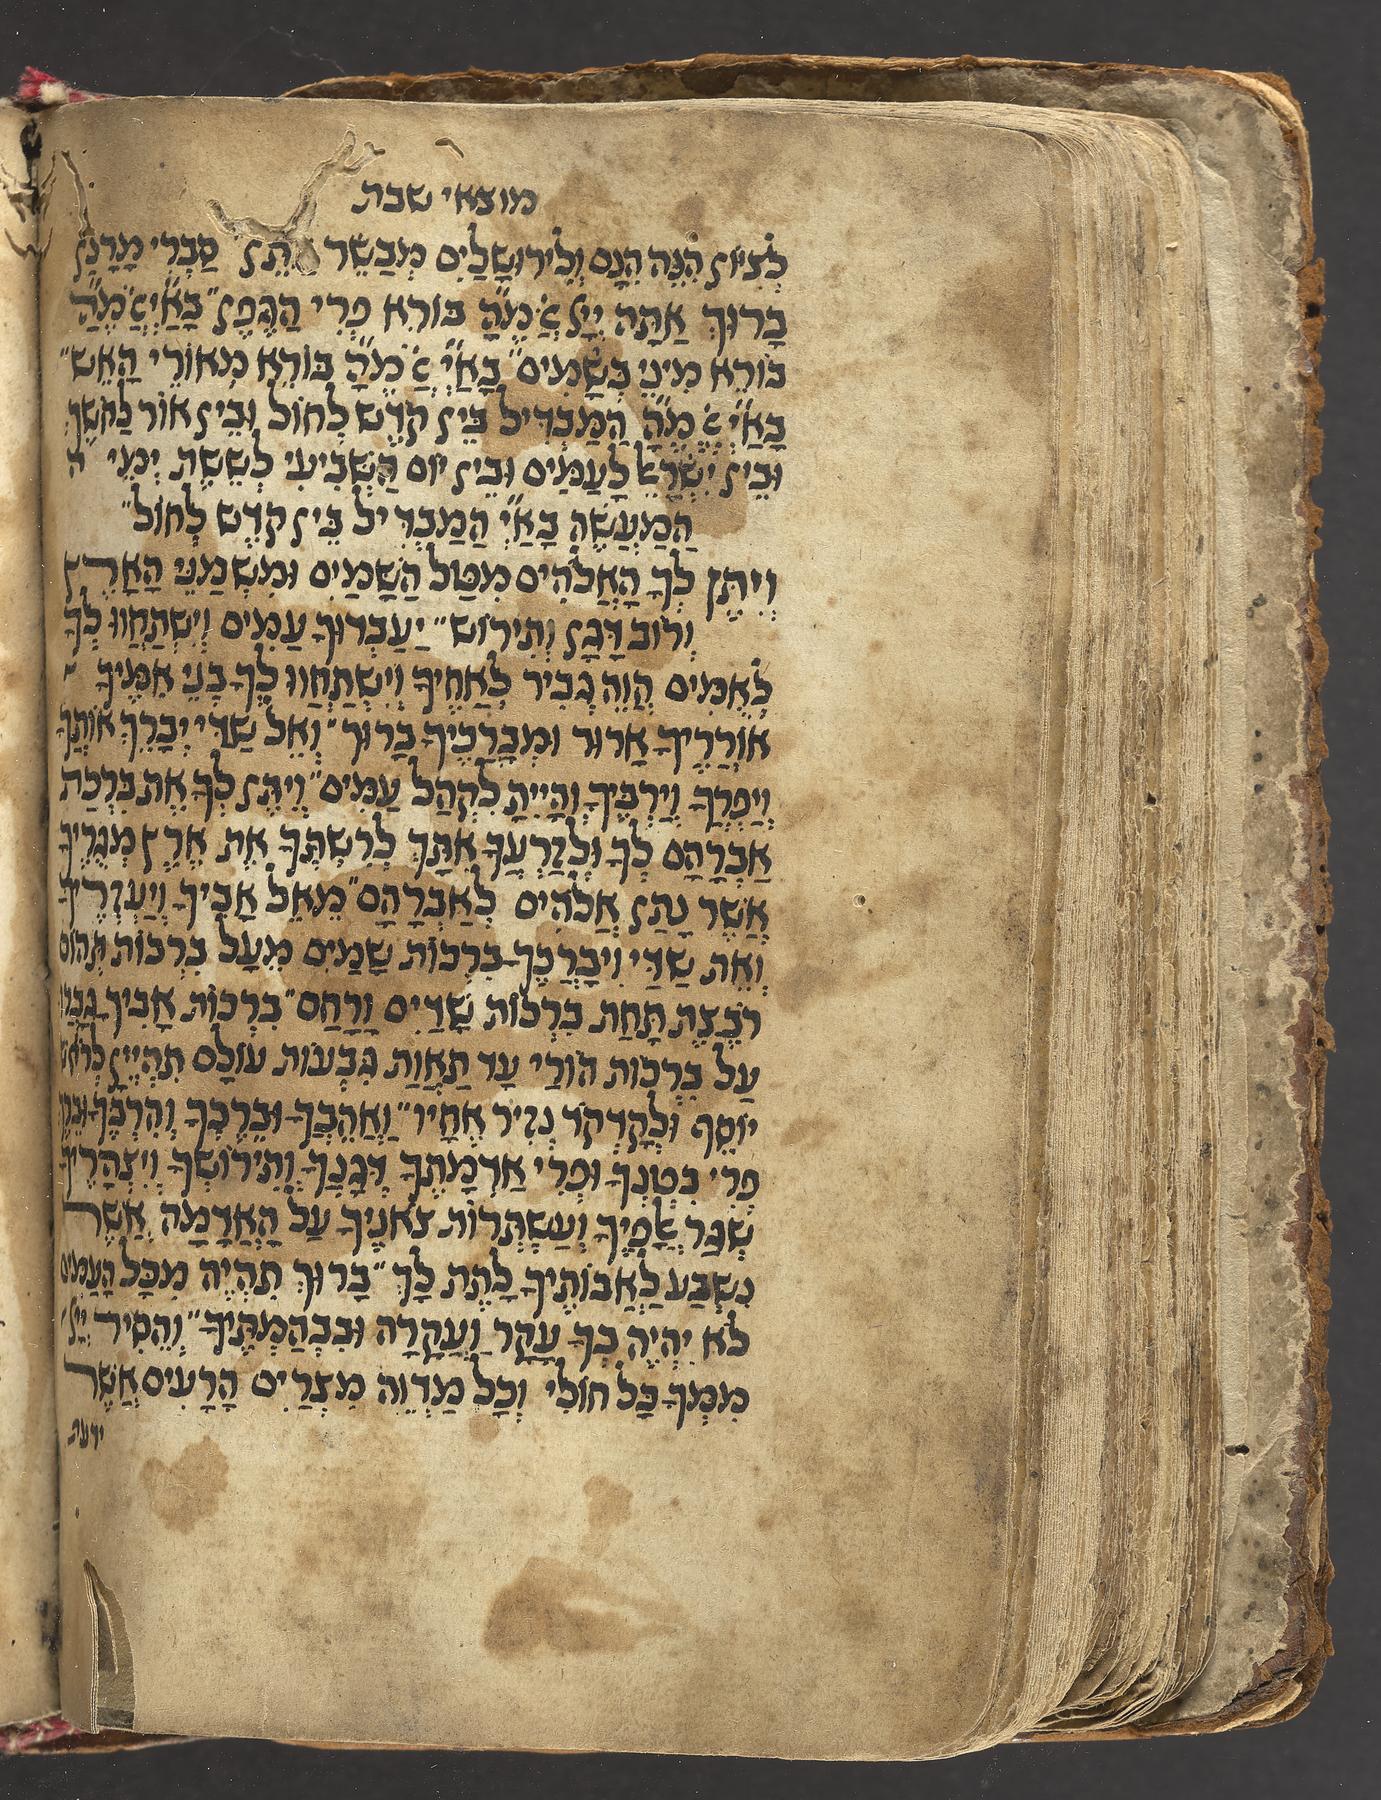 מוצאי שבת
לְצִיּוֹן הִנֵּה הִנָּם וְלִירוּשָׁלַיִם מְבַשֵּׂר אֶתֵּן סַבְרִי מָרָנָן
בָּרוּךְ אַתָּה יְיָ֗ אֱ֗ מֶ֗הָ בּוֹרֵא פְרִי הַגֶּפֶן״ בָּאַ֗יְ אֱ֗ מֶ֗הָ
בּוֹרֵא מִינֵי בְשָׂמִים״ בָּאַ֗יְ אֱ֗ מֶ֗הָ בּוֹרֵא מְאוֹרֵי הָאֵשׁ״
בָּאַ֗יְ אֱ֗ מֶ֗הָ הַמַּבְדִּיל בֵּין קֹדֶשׁ לְחוֹל וּבֵין אוֹר לַחֹשֶׁךְ
וּבֵין יִשְׂרָאֵל לָעַמִּים וּבֵין יוֹם הַשְּׁבִיעִי לְשֵׁשֶׁת יְמֵי ה
הַמַּעֲשֶׂה בָּאַ֗יְ הַמַּבְדִּיל בֵּין קֹדֶשׁ לְחוֹל״
וְיִתֶּן לְךָ הָאֱלֹהִים מִטַּל הַשָּׁמַיִם וּמִשְׁמַנֵּי הָאָרֶץ
וְרוֹב דָּגָן וְתִירוֹשׁ״ יַעַבְדוּךָ עַמִּים וְיִשְׁתַּחֲווּ לְךָ
לְאֻמִּים הֱוֵה גְבִיר לְאַחֶיךָ וְיִשְׁתַּחֲווּ לְךָ בְּנֵי אִמֶּךָ
אוֹרְרֶיךָ אָרוּר וּמְבָרְכֶיךָ בָּרוּךְ״ וְאֵל שַׁדַּי יְבָרֵךְ אוֹתְךָ
וְיַפְרְךָ וְיַרְבֶּיךָ וְהָיִיתָ לִקְהַל עַמִּים״ וְיִתֶּן לְךָ אֶת בִּרְכַּת
אַבְרָהָם לְךָ וּלְזַרְעֲךָ אִתָּךְ לְרִשְׁתְּךָ אֶת אֶרֶץ מְגֻרֶיךָ
אֲשֶׁר נָתַן אֱלֹהִים לְאַבְרָהָם״ מֵאֵל אָבִיךָ וְיַעְזְרֶיךָּ
וְאֵת שַׁדַּי וִיבָרְכֶךָּ בִּרְכוֹת שָׁמַיִם מֵעָל בִּרְכוֹת תְּהוֹם
רֹבֶצֶת תָּחַת בִּרְכוֹת שָׁדַיִם וָרָחַם״ בִּרְכוֹת אָבִיךָ גָּבְרוּ
עַל בִּרְכוֹת הוֹרַי עַד תַּאֲוַת גִּבְעוֹת עוֹלָם תִּהְיֶיןָ לְרֹאשׁ
יוֹסֵף וּלְקָדְקֹד נְזִיר אֶחָיו״ וַאֲהֵבְךָ וּבֵרֶכְךָ וְהִרְבֶּךָ וּבֵרַךְ
פְּרִי בִטְנְךָ וּפְרִי אַדְמָתֶךָ דְּגָנְךָ וְתִירוֹשְׁךָ וְיִצְהָרֶיךָ
שְׁגַר אֲלָפֶיךָ וְעַשְׁתְּרוֹת צֹאנֶיךָ עַל הָאֲדָמָה אֲשֶׁר
נִשְׁבַּע לַאֲבוֹתֶיךָ לָתֶת לָךְ״ בָּרוּךְ תִּהְיֶה מִכָּל הָעַמִּים
לֹא יִהְיֶה בְךָ עָקָר וַעֲקָרָה וּבִבְהֶמְתֶּיךָ״ וְהֵסִיר יְיָ֗
מִמְּךָ כָּל חוֹלִי וְכָל מַדְוֵה מִצְרַיִם הָרָעִים אֲשֶׁר
ידעת